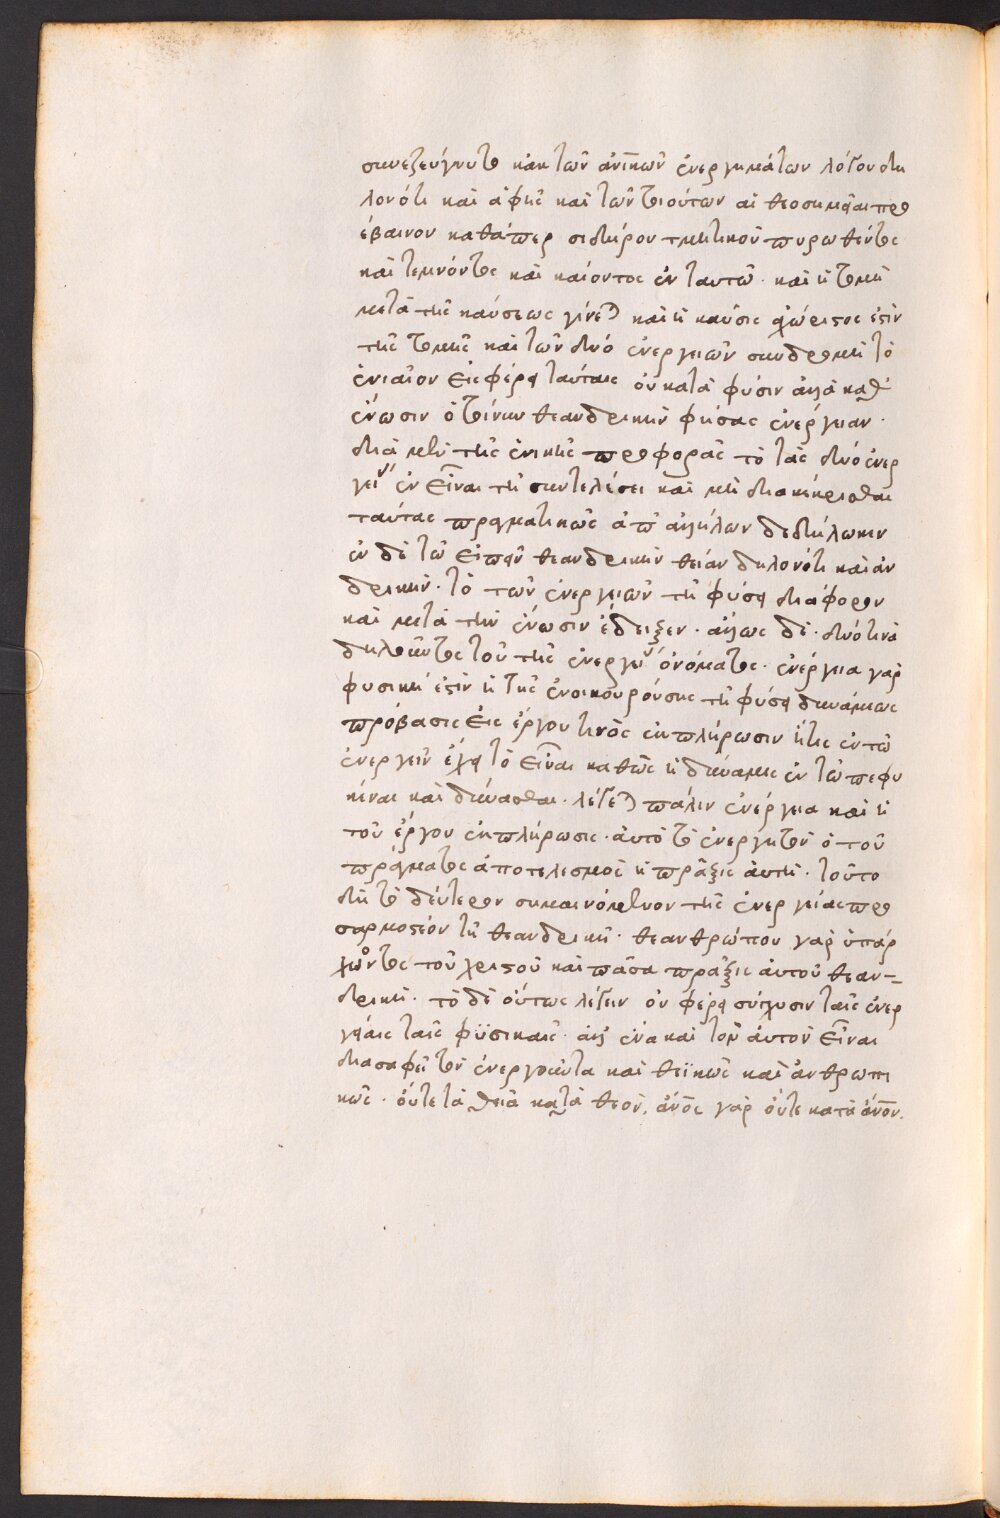 συνεζεύγνυτο κἀκ τῶν ἀνικῶν ἐνεργημάτων λόγου δη
λονότι καὶ ἁφῆς καὶ τῶν τοιούτων αἱ θεοσημεῖαι προ
έβαινον καθάπερ σιδήρου τμητικοῦ πυρωθέντος
καὶ τέμνοντος καὶ καίοντος ἐν ταυτῶ· καὶ ἡ τομὴ
μετὰ τῆς καύσεως γίνεται καὶ ἡ καῦσις ἀχώριστος ἐστιν
τῆς τομῆς καὶ τῶν δυὸ ἐνεργειῶν συνδρομὴ τὸ
ἑνιαῖον εἰσφέρει ταύταις οὐ κατὰ φύσιν ἀλλὰ καθ'
ἕνωσιν ὁ τοίνυν θεανδρικὴν φήσας ἐνέργειαν·
διὰ μὲν τῆς ἑνικῆς προφορᾶς τὸ τὰς δυὸ ἐνερ
γείας ἓν εἶναι τῆ συντελέσει καὶ μὴ διακεκρίσθαι
ταύτας πραγματικῶς ἀπ' ἀλλήλων δεδήλωκεν
ἐν δὲ τῶ εἰπεῖν θεανδρικὴν θείαν δηλονότι καὶ ἀν
δρικήν· τὸ τῶν ἐνεργειῶν τῆ φύσει διάφορον
καὶ μετὰ τὴν ἕνωσιν ἔδειξεν· ἄλλως δὲ· δυό τινὰ
δηλοῦντος τοῦ τῆς ἐνεργείας ὀνόματος· ἐνέργεια γὰρ
φυσική ἐστιν ἡ τῆς ἐνοικουρούσης τῆ φύσει δυνάμεως
πρόβασις εἰς ἔργου τινὸς ἐκπλήρωσιν ἥτις ἐν τῶ
ἐνεργεῖν ἔχει τὸ εἶναι καθὼς ἡ δύναμις ἐν τῶ πεφυ
κέναι καὶ δύνασθαι· λέγεται πάλιν ἐνέργεια καὶ ἡ
τοῦ ἔργου ἐκπλήρωσις· αὐτὸ τὸ ἐνεργητὸν ὁ τοῦ
πράγματος ἀποτελεσμὸς ἡ πρᾶξις αὐτή· τοῦτο
δὴ τὸ δεύτερον σημαινόμενον τῆς ἐνεργείας προ
σαρμοστέον τῆ θεανδρικῆ· θεανθρώπου γὰρ ὑπάρ
χοντος τοῦ χριστοῦ καὶ πᾶσα πρᾶξις αὐτοῦ θεαν-
δρική· τὸ δὲ οὕτως λέγειν οὐ φέρει σύγχυσιν ταῖς ἐνερ
γείαις ταῖς φϋσικαῖς· ἀλλ' ἕνα καὶ τὸν αὐτὸν εἶναι
διασαφεῖ τὸν ἐνεργοῦντα καὶ θεϊκῶς καὶ ἀνθρωπι
κῶς· οὔτε τὰ θεῖα κατὰ θεὸν, ἄνος γὰρ οὔτε κατὰ ἄνον.